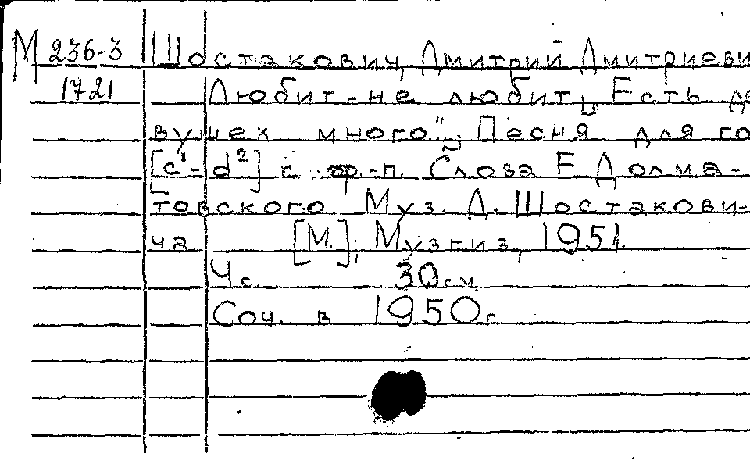 М 236-3 Шостакович, Дмитрий Дмитриеви
1721 Любит-не любит „Есть де
вушек много". Песня для го
[c¹-d²] с ф.-п. Слова Е Долма-
товского Муз. Д. Шостакови-
ча [М.], Музгиз, 1951.
4 с. 30 см
Соч. в 1950 г.